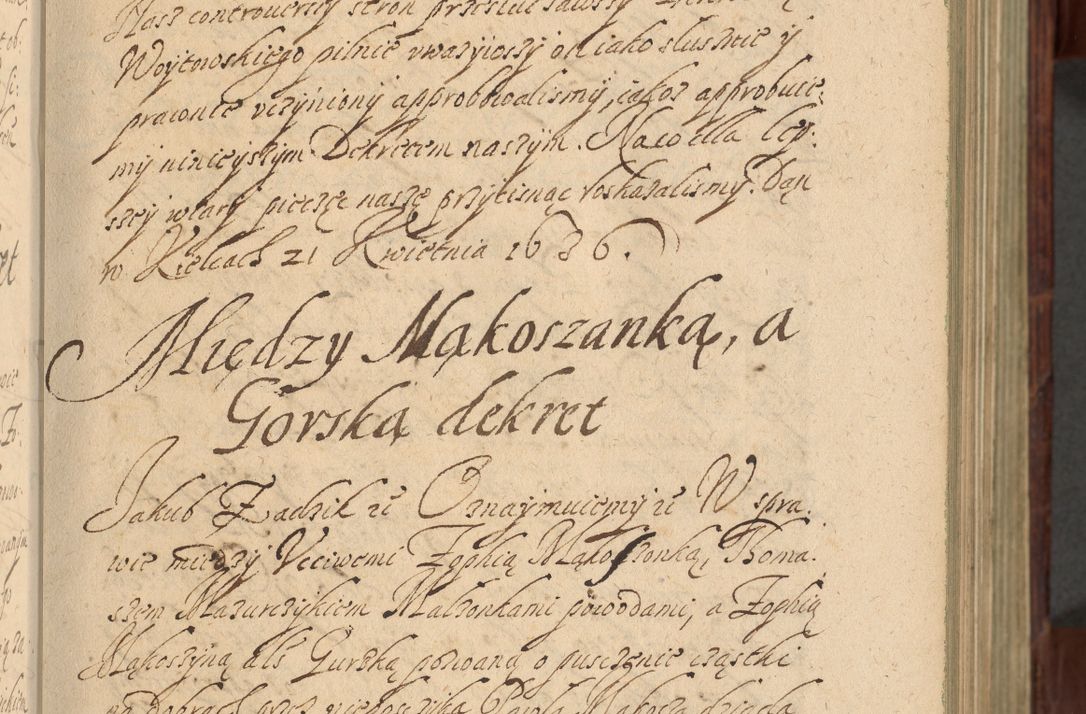 Nasz controuersy stron
Woytowskiego pilnie vwazyioszy on iako slusznie y
prawnie vczyniony approbowalismy, iakoz approbuie,
my ninieyszym Dekretem naszym. Na co dla lep:
szey wiary pieczęc naszę przycisnąc roskazalismy. Dan
w Kielcach 21 Kwietnia 1636.
Między Mąkoszanką, a
Gorską dekret
Jakub Zadzik etc Oznaymuiemy iz W spra,
wie miedzy Vcciwemi Zophią Mąkoszonką, Thoma,
szem Mazurczykiem Malzonkami powodami, a Zophią
Mąkoszyną als Gurską pozwaną o puszczenie cząstki
na Dobrach przez nieboszczyka Pawla Mąkosza dziada